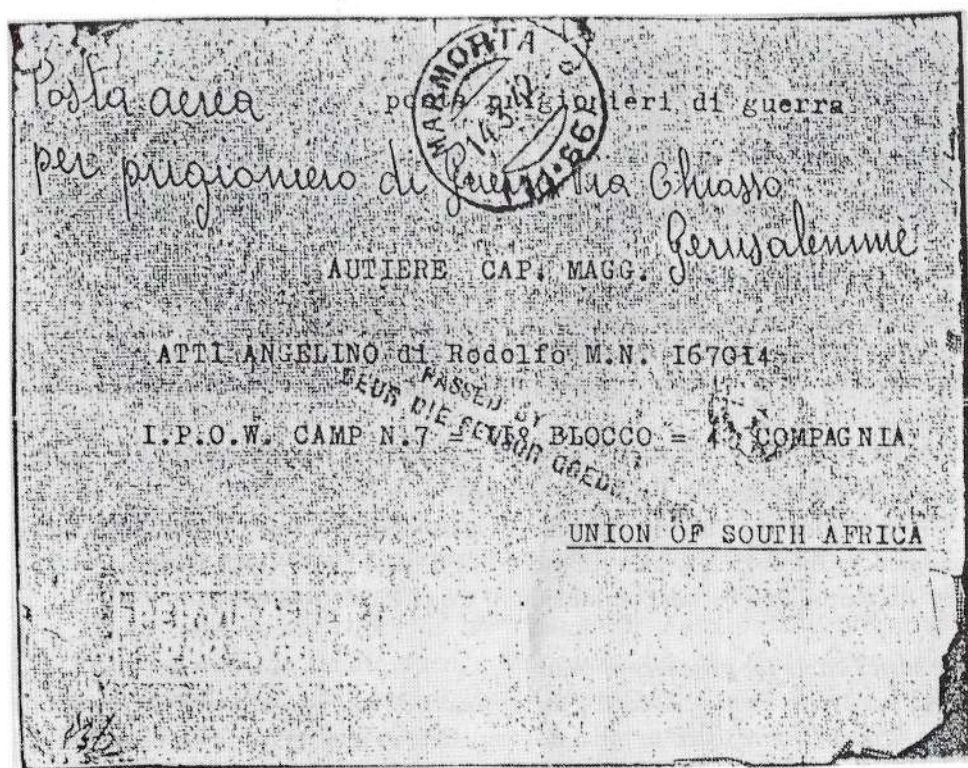 Posta aerea
posta prigionieri di guerra
MARMORTA
14.3.42
per prigioniero di Guerra Via Chiasso
Gerusalemme
AUTIERE CAP. MAGG.
ATTI ANGELINO di Rodolfo M.N. I67014
PASSED BY
DEUR DIE SENSOR GOED
I.P.O.W. CAMP N.7 = BLOCCO = 4 COMPAGNIA
UNION OF SOUTH AFRICA